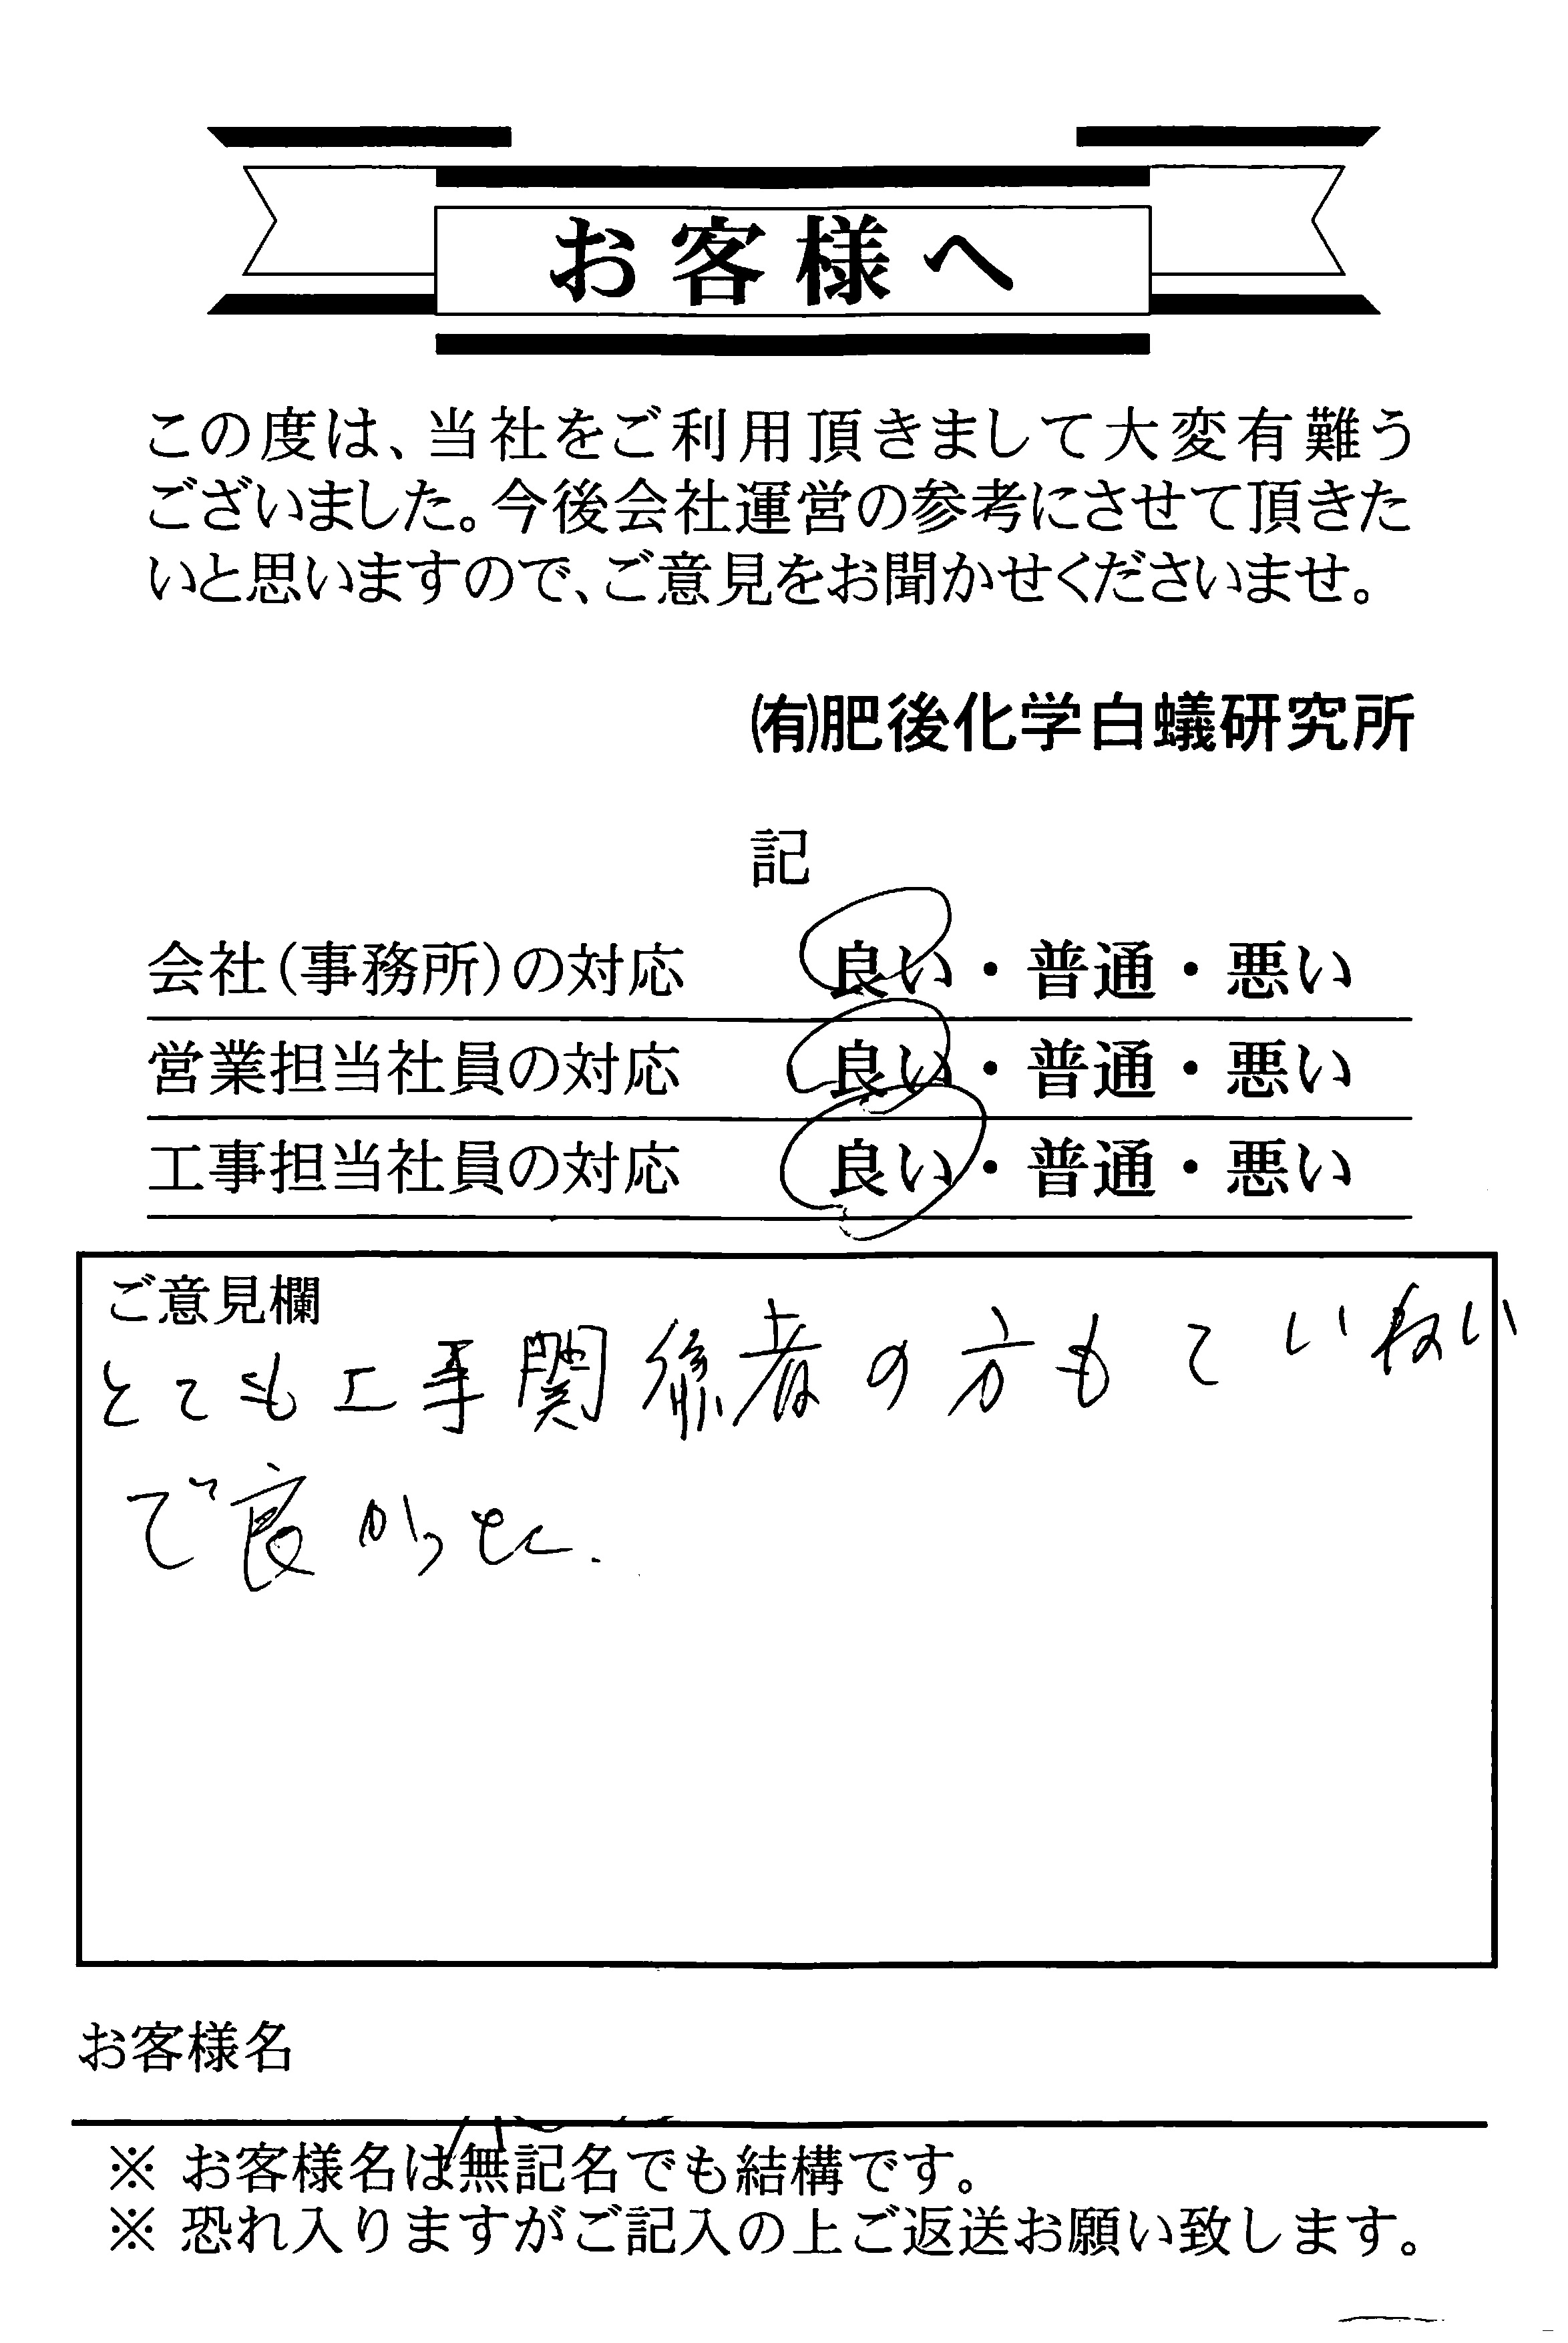 お客様へ
この度は、当社をご利用頂きまして大変有難う
ございました。今後会社運営の参考にさせて頂きた
いと思いますので、ご意見をお聞かせくださいませ。
㈲肥後化学白蟻研究所
記
会社(事務所)の対応 良い・普通・悪い
営業担当社員の対応 良い・普通・悪い
工事担当社員の対応 良い・普通・悪い
ご意見欄
とても工事関係者の方もていねい
で良かった.
お客様名
※ お客様名は無記名でも結構です。
※ 恐れ入りますがご記入の上ご返送お願い致します。